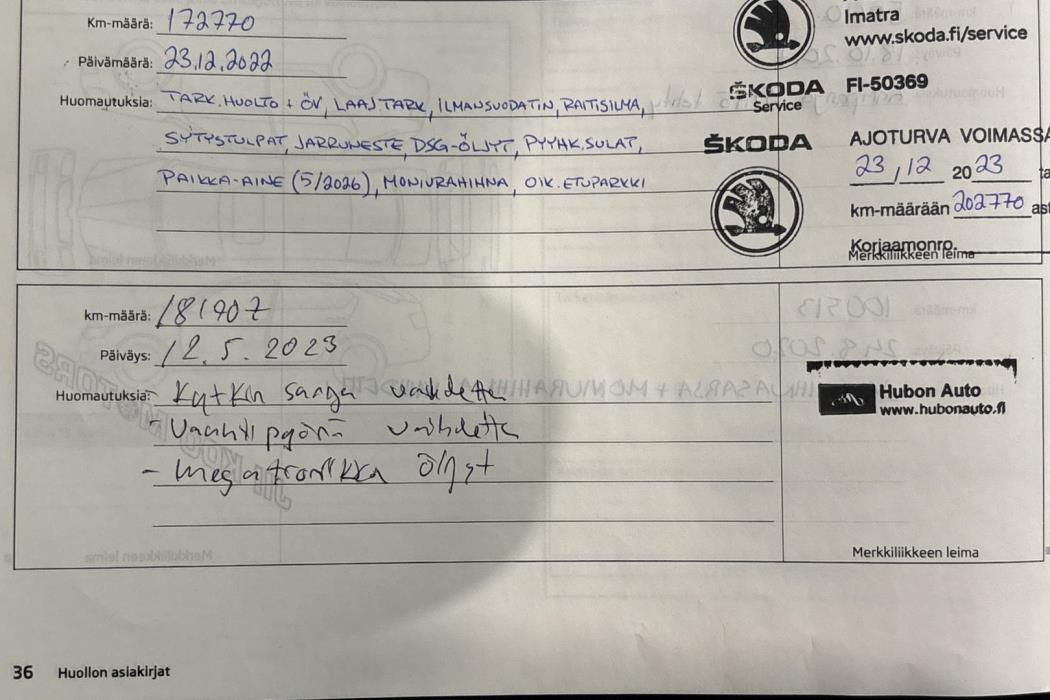 Km-määrä: 172770
Imatra
www.skoda.fi/service
Päivämäärä: 23.12.2022
Huomautuksia: TARK.HUOLTO + ÖV, LAAJ.TARK, ILMANSUODATIN, RAITISILMA,
ŠKODA FI-50369
Service
SYTYSTULPAT, JARRUNESTE, DSG-ÖLJYT, PYYHK.SULAT,
ŠKODA
AJOTURVA VOIMASSA
PAIKKA-AINE (5/2026), MONIURAHIHNA, OIK. ETUPARKKI
23/12 2023
km-määrään 202770
Korjaamonro.
Merkkiliikkeen leima
km-määrä: 181907
Päiväys: 12.5.2023
Huomautuksia: - Kytkin sarja vaihdettu
- Vauhtipyörä vaihdettu
- megatroniikka öljyt
Hubon Auto
www.hubonauto.fi
Merkkiliikkeen leima
36 Huollon asiakirjat